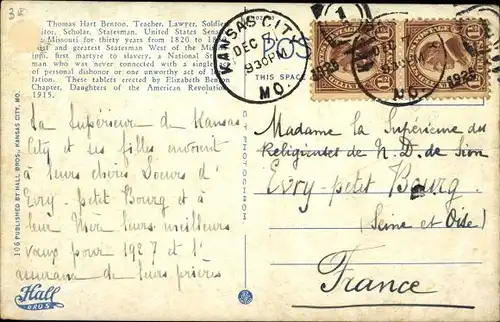 38
Thomas Hart Benton. Teacher, Lawyer, Soldier,
itor, Scholar, Statesman, United States Sena
Missouri for thirty years from 1820 to 18
st and greatest Statesman West of the Miss
ppi, first martyr to slavery, a National States
man who was never connected with a single
of personal dishonor or one unworthy act of
tion. These tablets erected by Elizabeth Benton
Chapter, Daughters of the American Revolution
1915.
KANSAS CITY,
DEC 7
930 PM
MO.
1
POS
THIS SPACE
1926
MO.
1926
La Supérieure de Kansas
City et ses filles envoient
à leurs chères Soeurs d'
Evry-petit Bourg et à
leur Mère leurs meilleurs
voeux pour 1927 et l'
de leurs prières
Madame la Supérieure des
Religieuses de N. D. de Sion
Evry-petit Bourg
(Seine et Oise)
France
106 PUBLISHED BY HALL BROS., KANSAS CITY, MO.
Hall
BROS